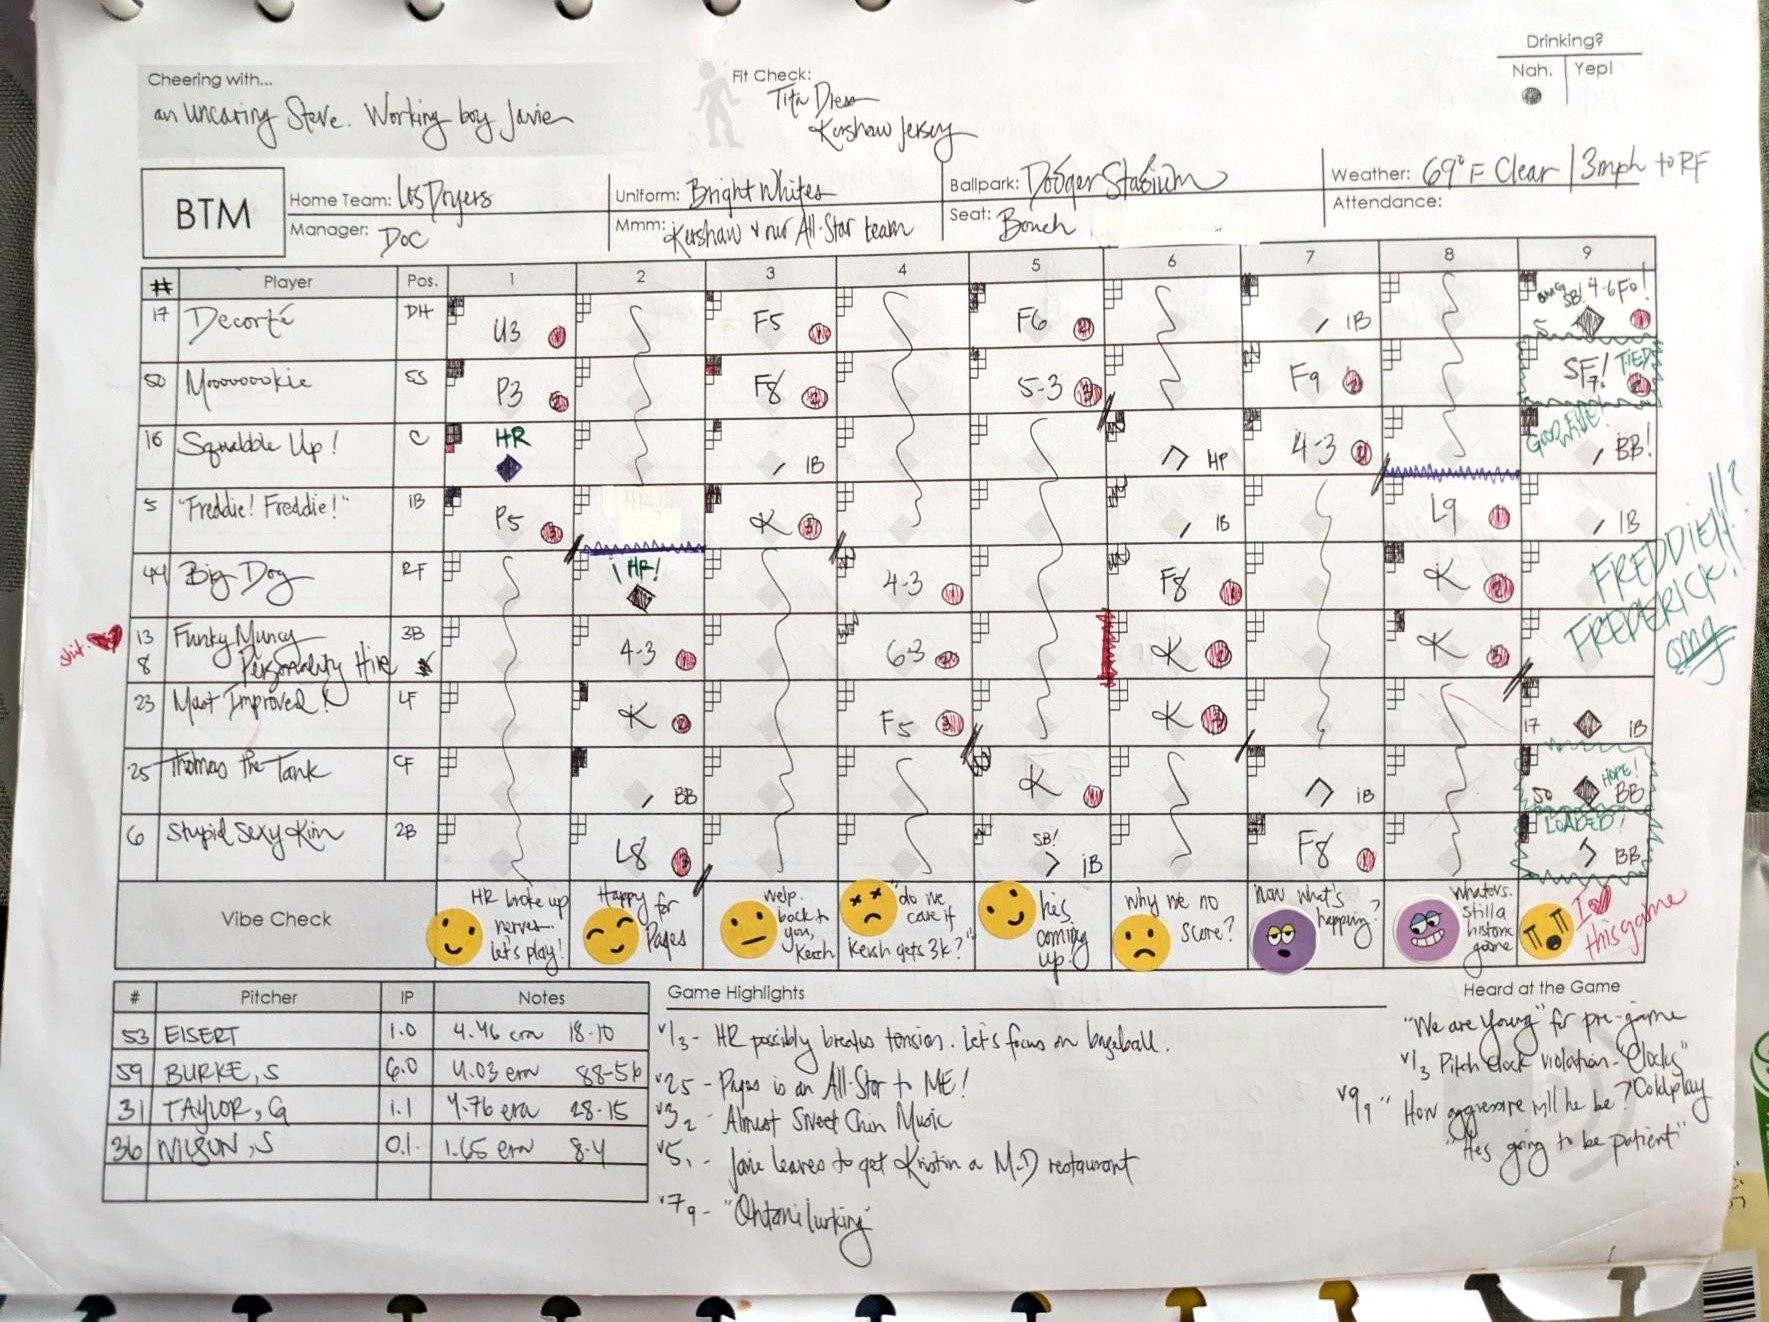 Drinking?
Nah. Yep!
Cheering with...
an uncaring Steve. Working boy Javier
Fit Check:
Tita Dress
Kershaw Jersey
BTM
Home Team: Los Doyers
Uniform: Bright Whites
Ballpark: Dodger Stadium
Weather: 69°F Clear | 3mph to RF
Manager: Doc
Mmm: Kershaw & our All-Star team
Seat: Bench
Attendance:
# Player Pos. 1 2 3 4 5 6 7 8 9
17 Decorté DH U3 1 F5 1 F6 2 , 1B OMG SB! 4-6 Fo! 1
50 Mooooookie SS P3 2 F8 2 5-3 3 F9 2 SF7! TIED 2
16 Squabble Up! C HR , 1B HP 4-3 2 GOOD EYE! , BB!
5 "Freddie! Freddie!" 1B P5 3 K 3 , 1B L9 1 , 1B
FREDDIE!!!?
FREDERICK!!
omg
44 Big Dog RF ¡HR! 4-3 1 F8 1 K 2
shit.
13 Funky Muncy 3B 4-3 1 6-3 2 K 2 K 3
8 Personality Hire
23 Most Improved! LF K 2 F5 3 K 3 17 1B
25 Thomas the Tank CF , BB K 1 1B 50 HOPE! BB
6 Stupid Sexy Kim 2B L8 3 SB! 1B F8 1 LOADED! BB
Vibe Check
HR broke up nerves. let's play!
Happy for Pages
welp. back to you, Kersh
"do we care if Kersh gets 3k?"
he's coming up.
why we no score?
now what's happening?
whatevs. still a historic game
I this game
# Pitcher IP Notes
53 EISERT 1.0 4.46 era 18-10
59 BURKE, S 6.0 4.03 era 88-56
31 TAYLOR, G 1.1 4.76 era 28-15
36 WILSON, S 0.1 1.65 era 8-4
Game Highlights
v1₃ - HR possibly breaks tension. Let's focus on baseball.
v2₅ - Pages is an All-Star to ME!
v3₂ - Almost Sweet Chin Music
v5₁ - Javi leaves to get Kristin a M-D restaurant
v7₉ - "Ohtani lurking"
Heard at the Game
"We are Young" for pre-game
v1₃ Pitch Clock violation - "Clocks" Coldplay
v9₁ "How aggressive will he be?"
"He's going to be patient"